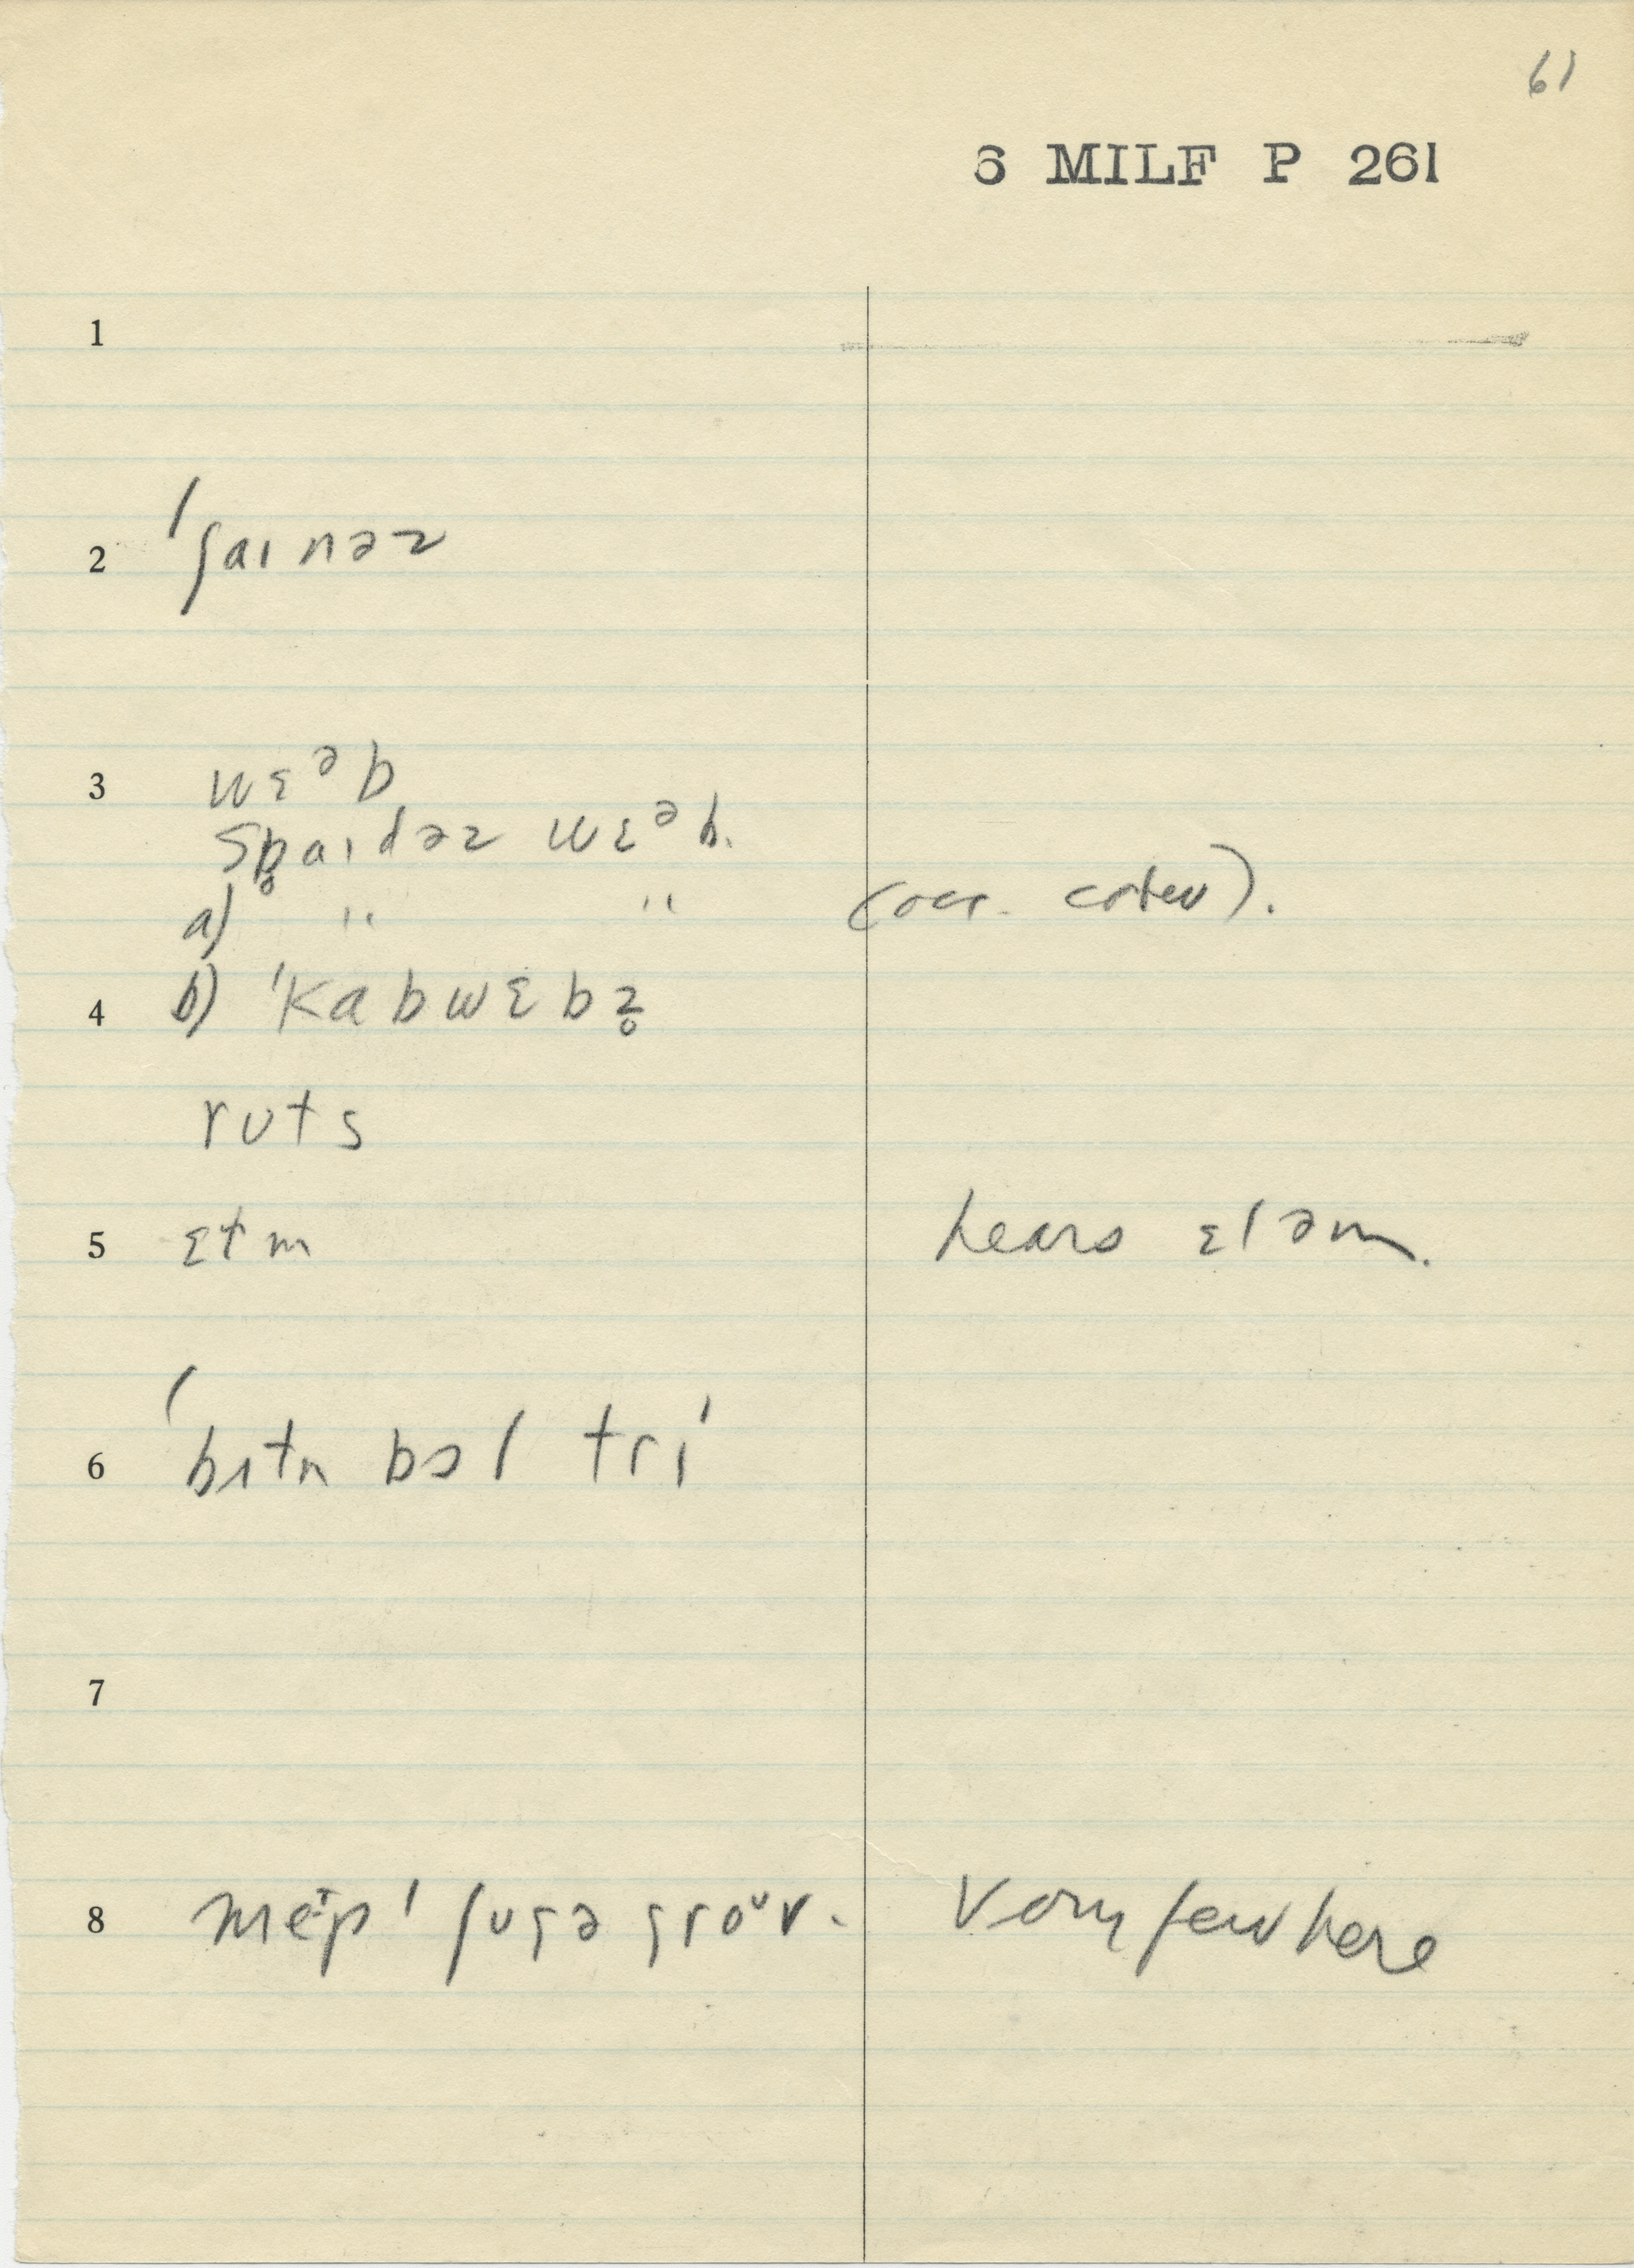 61
6 MILF P 261
1
2 ˈʃaɪnəz
3 wɛᵊb
spaɪdəz wɛᵊb.
a) " " (occ. cobew).
4 b) ˈkabwɛbz̥
rʊts
5 ɛtm hears ɛləm.
6 ˈbɪtn bɔl tri
7
8 ʃʊgə Very few here